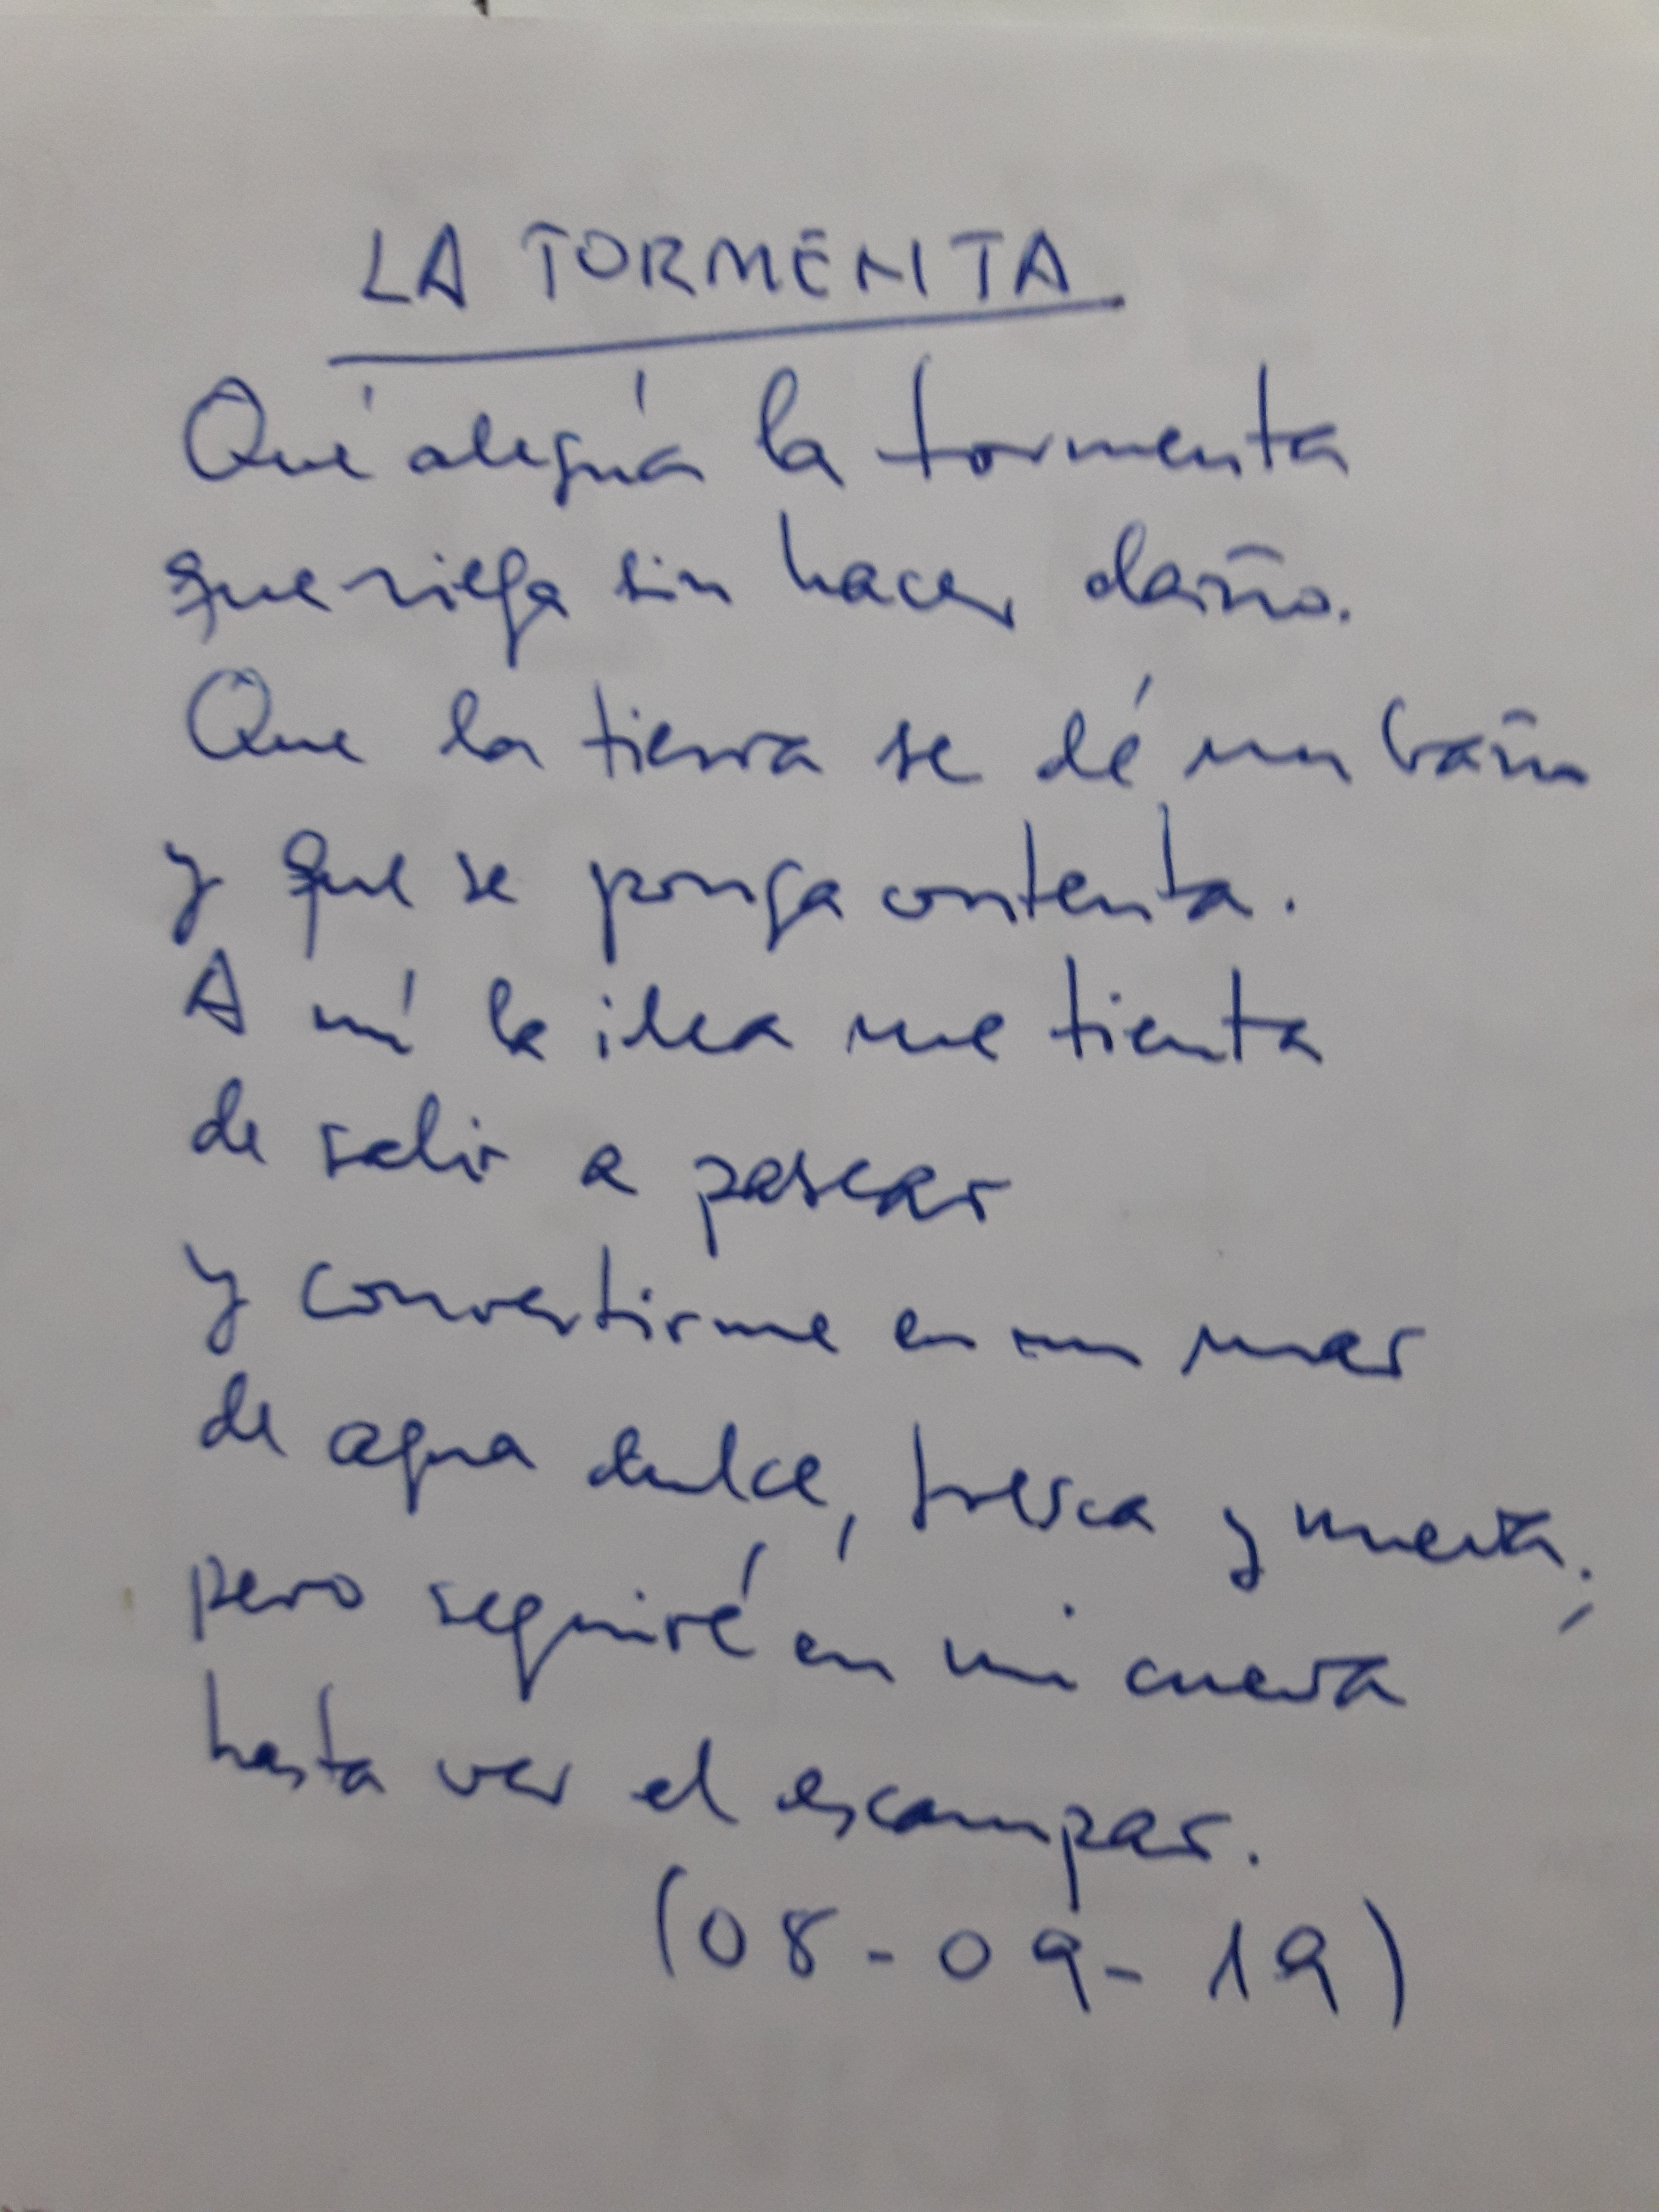 LA TORMENTA
Qué alegría la tormenta
que riega sin hacer daño.
Que la tierra se dé un baño
y que se ponga contenta.
A mí la idea me tienta
de salir a pasear
y convertirme en un mar
de agua dulce, fresca y nueva;
pero seguiré en mi cueva
hasta ver el escampar.
(08-09-19)